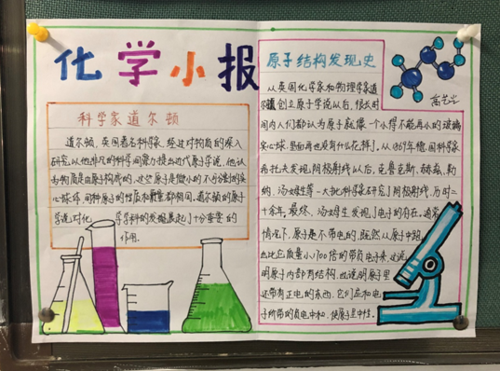 化学小报
科学家道尔顿
道尔顿,英国著名科学家,经过对物质的深入
研究,以他非凡的科学洞察力提出近代原子学说,他认
为物质是由原子构成的,这些原子是微小的不可分割的实
心球体,同种原子的性质和质量都相同,道尔顿的原子
学说对化学学科的发展起了十分重要的
作用.
原子结构发现史
从英国化学家和物理学家道
尔顿创立原子学说以后,很长时
间内人们都认为原子就像一个小得不能再小的玻璃
实心球,里面再也没有什么花样了,从1869年德国科学家
希托夫发现阴极射线以后,克鲁克斯、赫兹、勒
纳、汤姆生等一大批科学家研究了阴极射线,历时二
十余年,最终,汤姆生发现了电子的存在,通常
情况下,原子是不带电的,既然从原子中能
跑出比它质量小1700倍的带负电子来,这说
明原子内部有结构,也说明原子里
还带有正电的东西,它们应和电
子所带的负电中和,使原子呈中性.